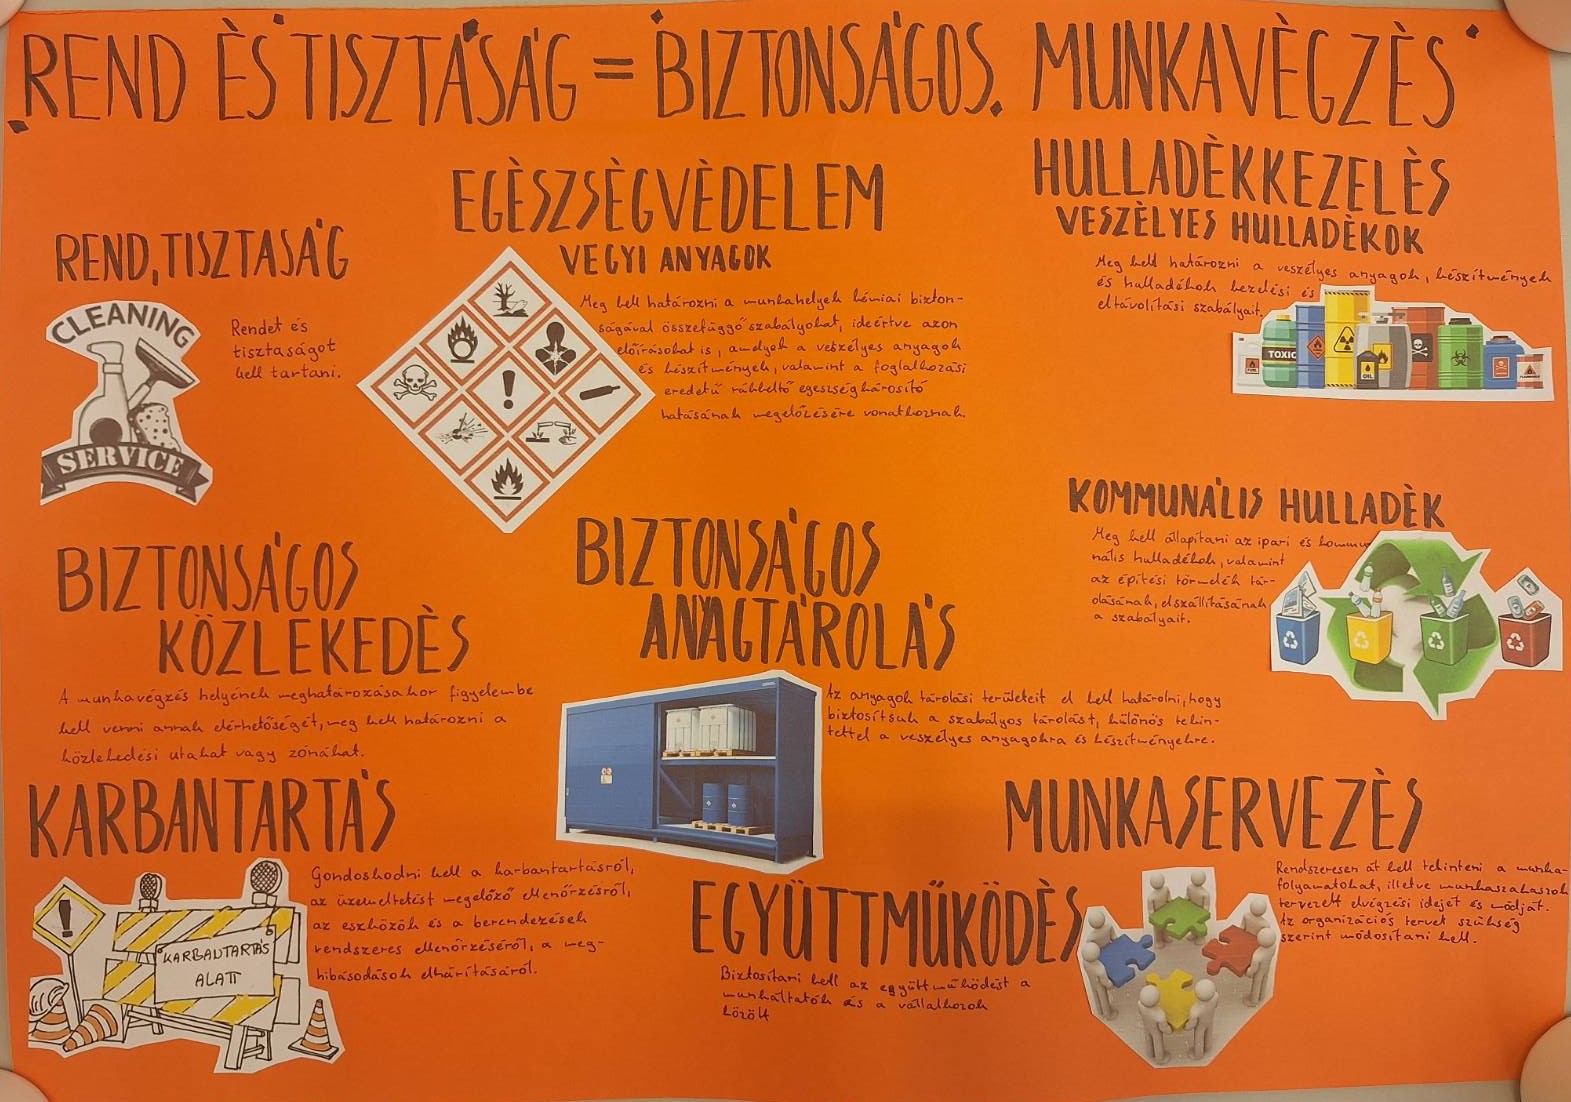 REND ÈS TISZTASÁG = BIZTONSÁGOS MUNKAVÈGZÈS
REND, TISZTASÁG
CLEANING
SERVICE
Rendet és
tisztaságot
kell tartani.
EGÈSZSÈGVÈDELEM
VEGYI ANYAGOK
Meg kell határozni a munkahelyek kémiai bizton-
ságával összefüggő szabályokat, ideértve azon
előírásokat is, amelyek a veszélyes anyagok
és készítmények, valamint a foglalkozási
eredetű rákkeltő egészségkárosító
hatásának megelőzésére vonatkoznak.
HULLADÈKKEZELÈS
VESZÈLYES HULLADÈKOK
Meg kell határozni a veszélyes anyagok, készítmények
és hulladékok kezelési és
eltávolítási szabályait.
TOXIC
OIL
KOMMUNÁLIS HULLADÈK
Meg kell állapítani az ipari és kommu
nális hulladékok, valamint
az építési törmelék tár-
olásának, elszállításának
a szabályait.
BIZTONSÁGOS
KÖZLEKEDÈS
A munkavégzés helyének meghatározásakor figyelembe
kell venni annak elérhetőségét, meg kell határozni a
közlekedési utakat vagy zónákat.
BIZTONSÁGOS
ANYAGTÁROLÁS
Az anyagok tárolási területeit el kell határolni, hogy
biztosítsuk a szabályos tárolást, különös tekin-
tettel a veszélyes anyagokra és készítményekre.
KARBANTARTÁS
KARBANTARTÁS
ALATT
Gondoskodni kell a karbantartásról,
az üzemeltetést megelőző ellenőrzésről,
az eszközök és a berendezések
rendszeres ellenőrzéséről, a meg-
hibásodások elhárításáról.
EGYÜTTMŰKÖDÈS
Biztosítani kell az együttműködést a
munkáltatók és a vállalkozók
között
MUNKASERVEZÈS
Rendszeresen át kell tekinteni a munka-
folyamatokat, illetve munkaszakaszok
tervezett elvégzési idejét és módját.
Az organizációs tervet szükség
szerint módosítani kell.